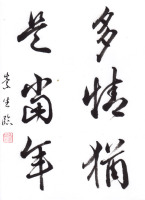 多情猶
是當年